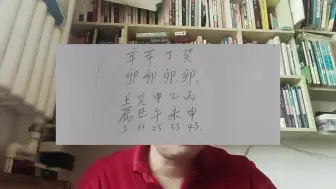 辛 辛 丁 癸
卯 卯 卯 卯
壬 癸 甲 乙 丙
辰 巳 午 未 申
3 13 23 33 43